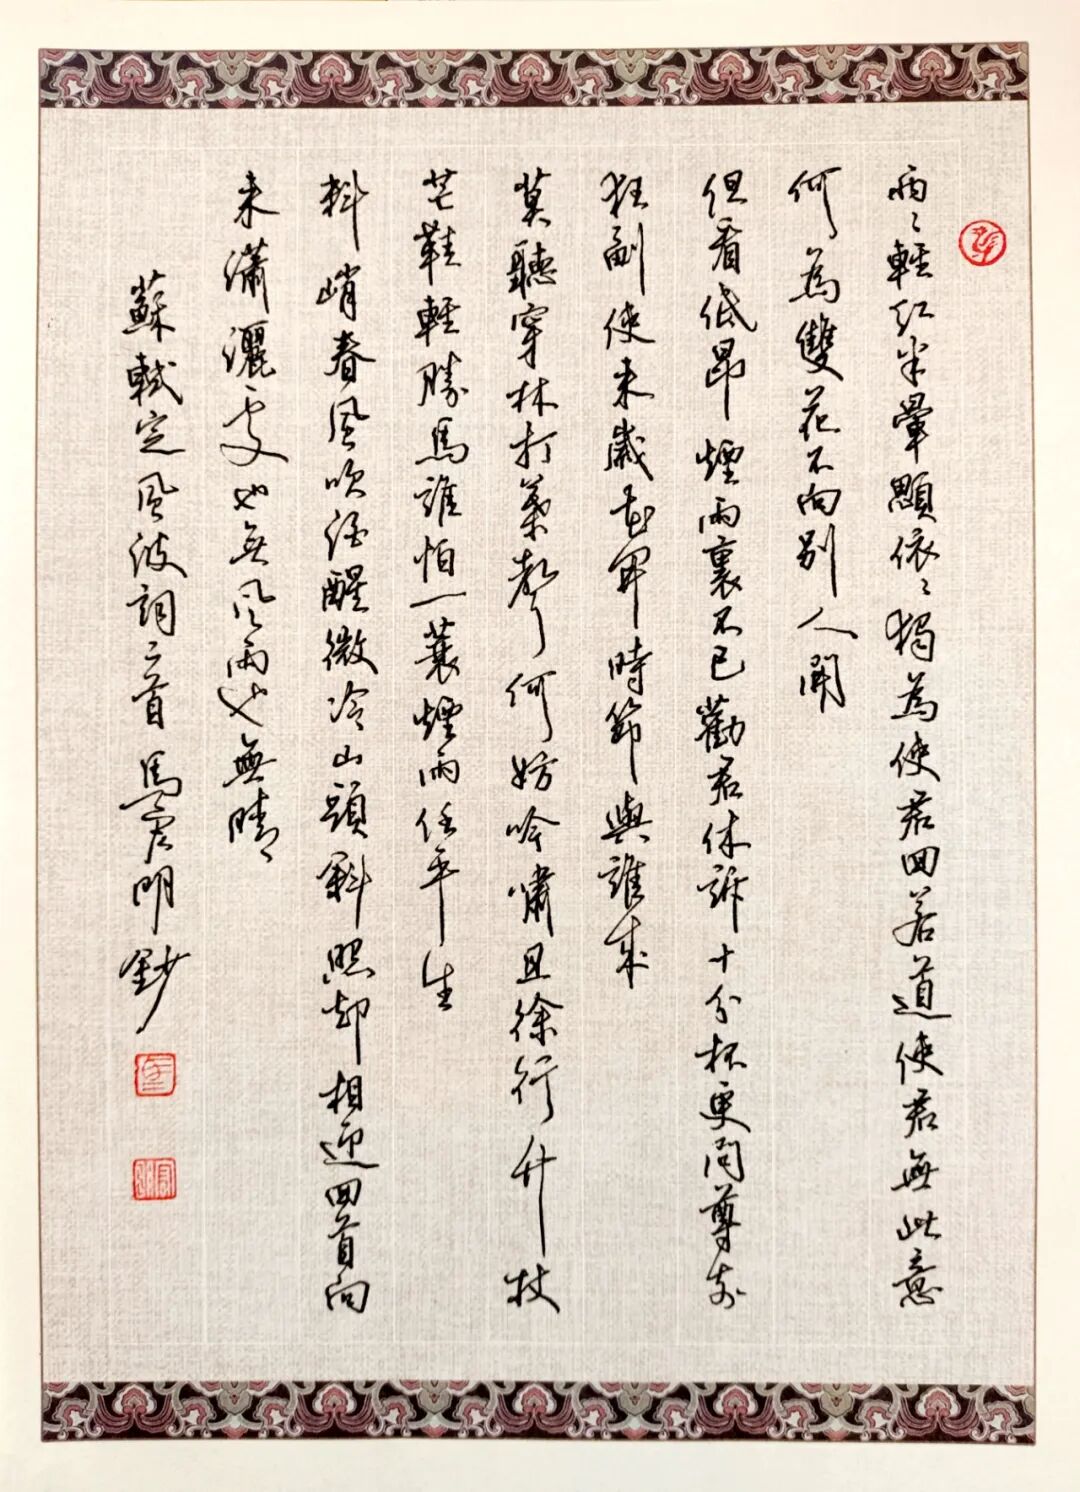 兩〻輕紅半暈顋依〻獨為使君回若道使君無此意
何為雙花不向別人開
但看低昂煙雨裏不已勸君休訴十分杯更問尊前
狂副使來歲花開時節與誰來
莫聽穿林打葉聲何妨吟嘯且徐行竹杖
芒鞋輕勝馬誰怕一蓑煙雨任平生
料峭春風吹酒醒微冷山頭斜照却相迎回首向
來瀟灑處也無風雨也無晴
蘇軾定風波詞二首 馬明鈔